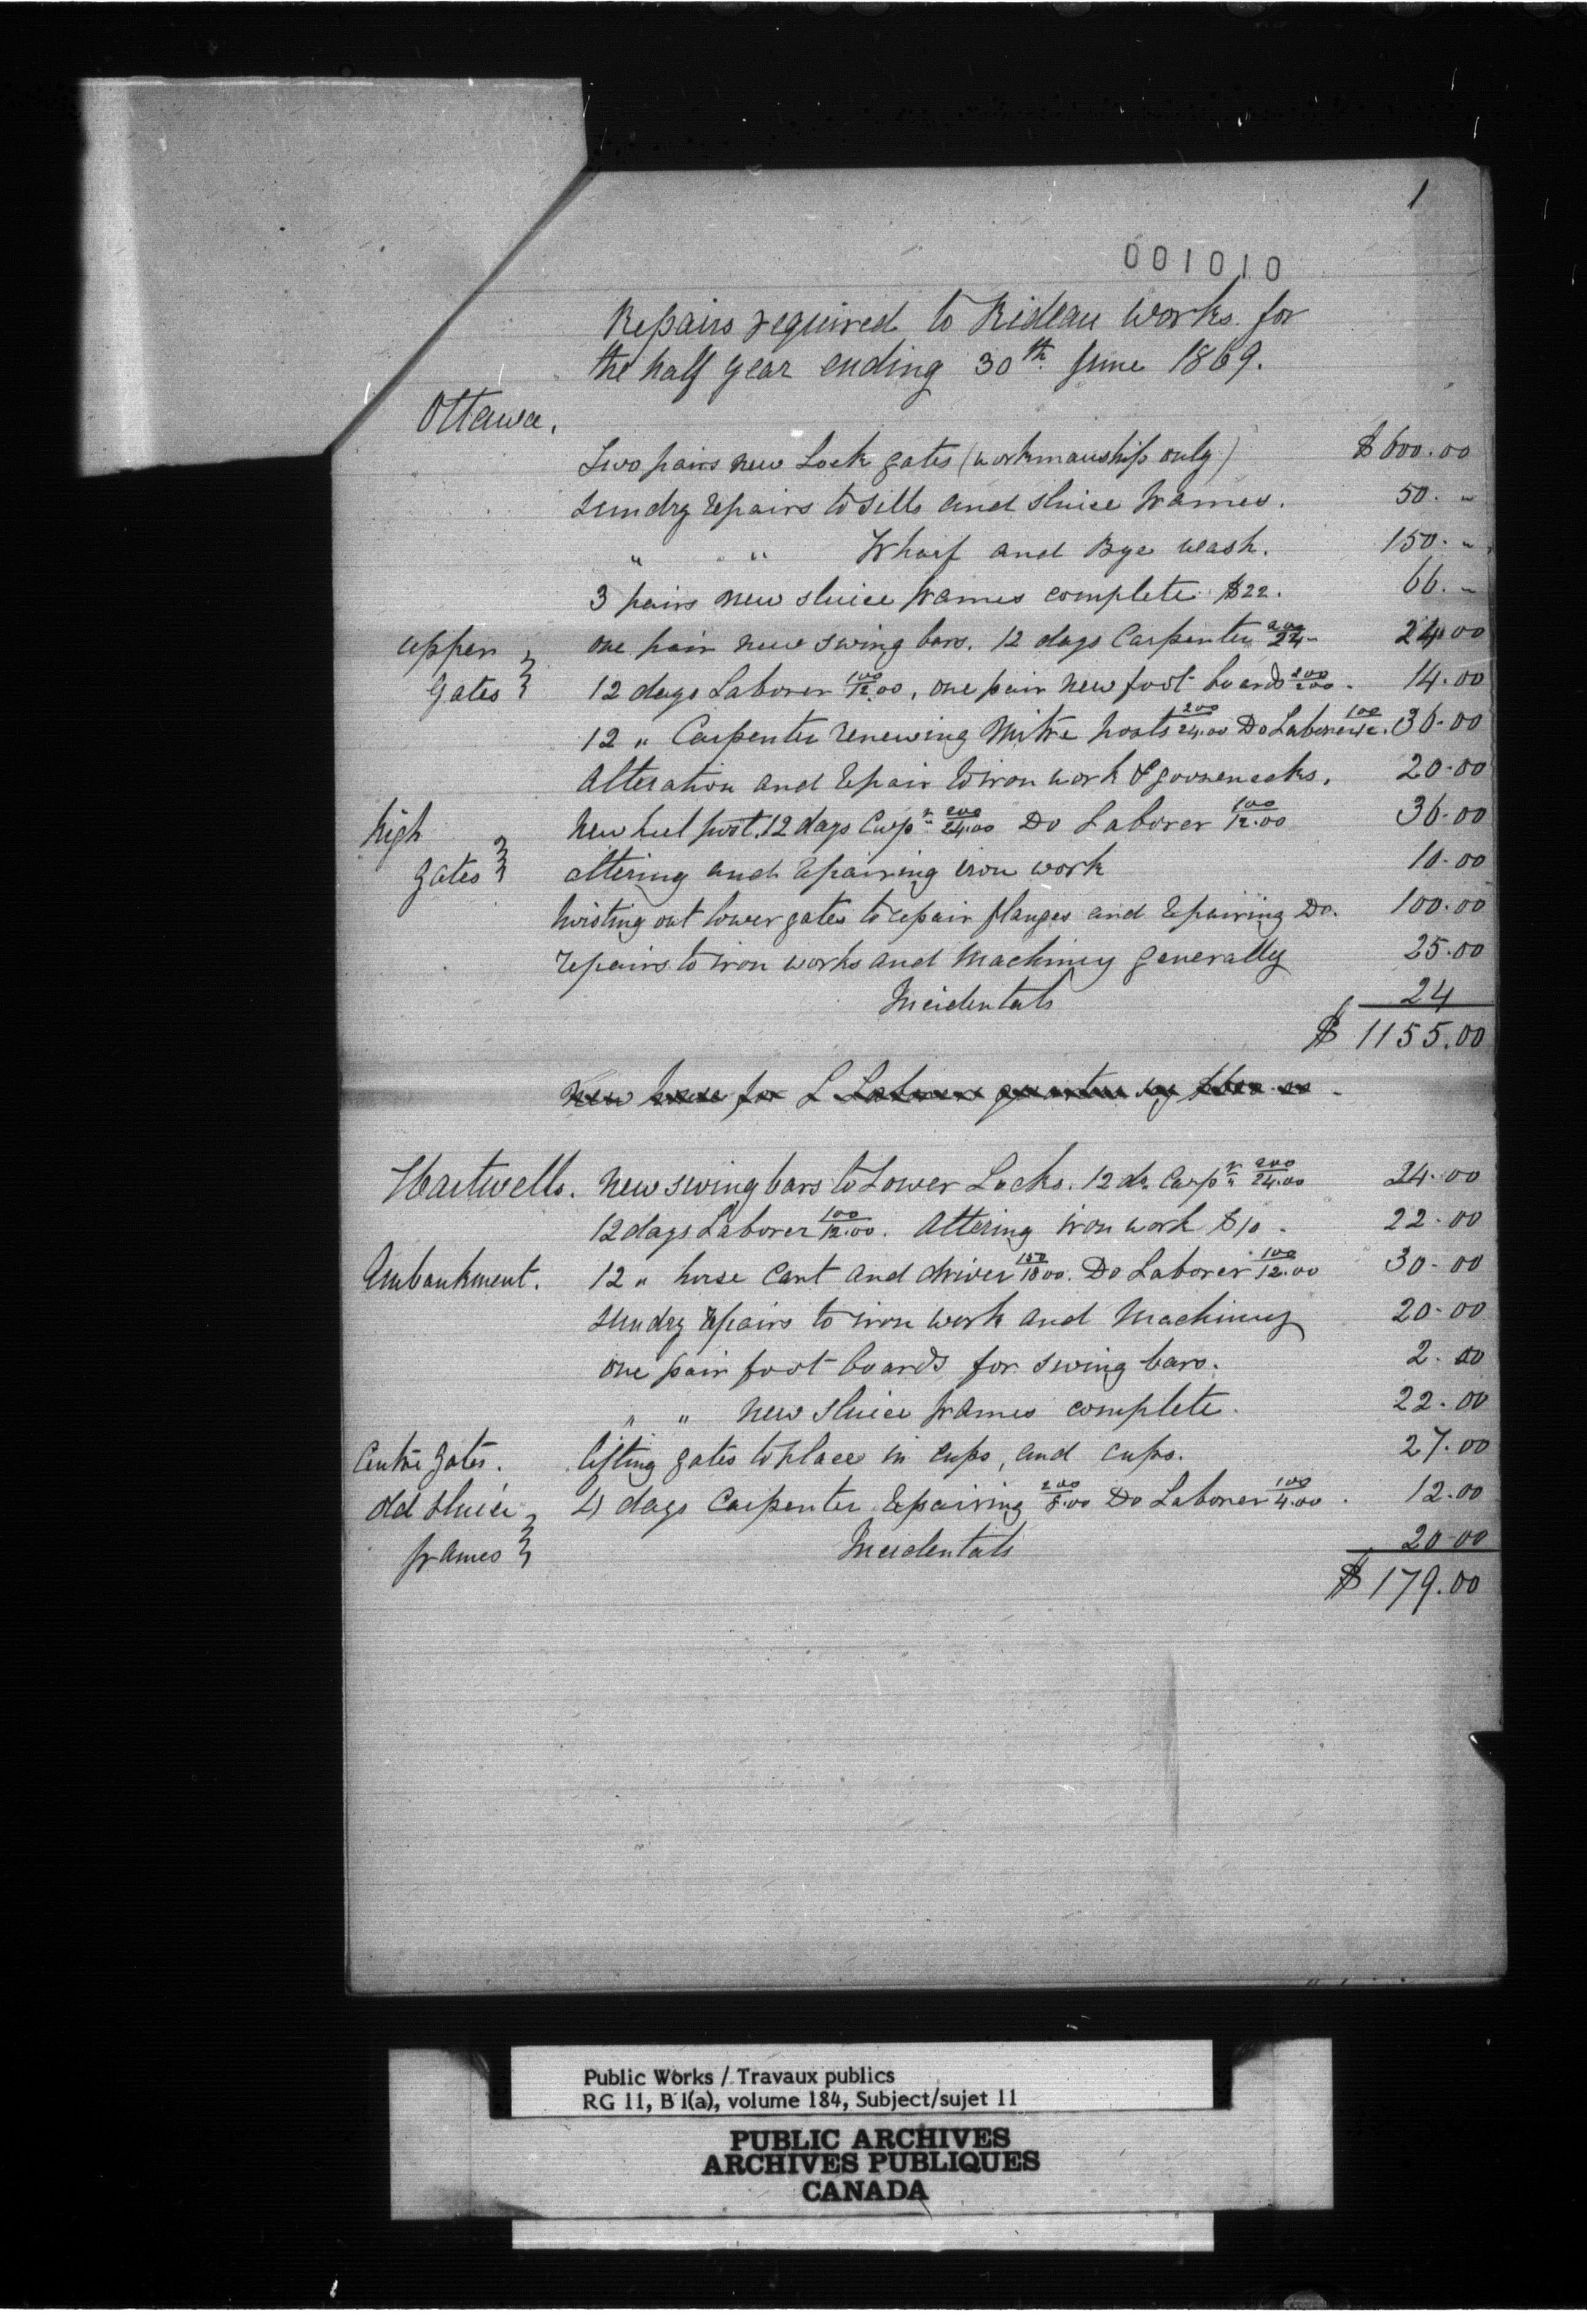 1
001010
Repairs required to Rideau Works for
the half year ending 30th June 1869.
Ottawa.
Two pairs new Lock gates (workmanship only) $600.00
Sundry repairs to sills and sluice frames. 50. "
" " Wharf and Bye wash. 150. "
3 pairs new sluice frames complete $22. 66. "
Upper one pair new swing bars. 12 days Carpenter 200/24- 24.00
gates } 12 days Laborer 100/12.00, one pair new foot boards 200/2.00. 14.00
12 " Carpenter renewing Mitre posts 200/24.00 Do Laborer 100/12. 36.00
Alteration and repair to iron work & goosenecks. 20.00
High New heel post. 12 days Carpr 200/24.00 Do Laborer 100/12.00 36.00
gates } altering and repairing iron work 10.00
hoisting out lower gates to repair flanges and repairing Do. 100.00
repairs to iron works and Machinery generally 25.00
Incidentals 24
$ 1155.00
New for L
Hartwells. New swing bars to Lower Locks. 12 ds Carpr 200/24.00 24.00
12 days Laborer 100/12.00. Altering iron work $10. 22.00
Embankment. 12 " horse Cart and driver 150/18.00. Do Laborer 100/12.00 30.00
Sundry repairs to iron work and Machinery 20.00
one pair foot boards for swing bars. 2.00
" " new sluice frames complete. 22.00
Centre gates. lifting gates to place in cups, and cups. 27.00
Old sluice 4 days Carpenter repairing 200/8.00 Do Laborer 100/4.00. 12.00
frames } Incidentals 20.00
$ 179.00
Public Works / Travaux publics
RG 11, B 1(a), volume 184, Subject/sujet 11
PUBLIC ARCHIVES
ARCHIVES PUBLIQUES
CANADA